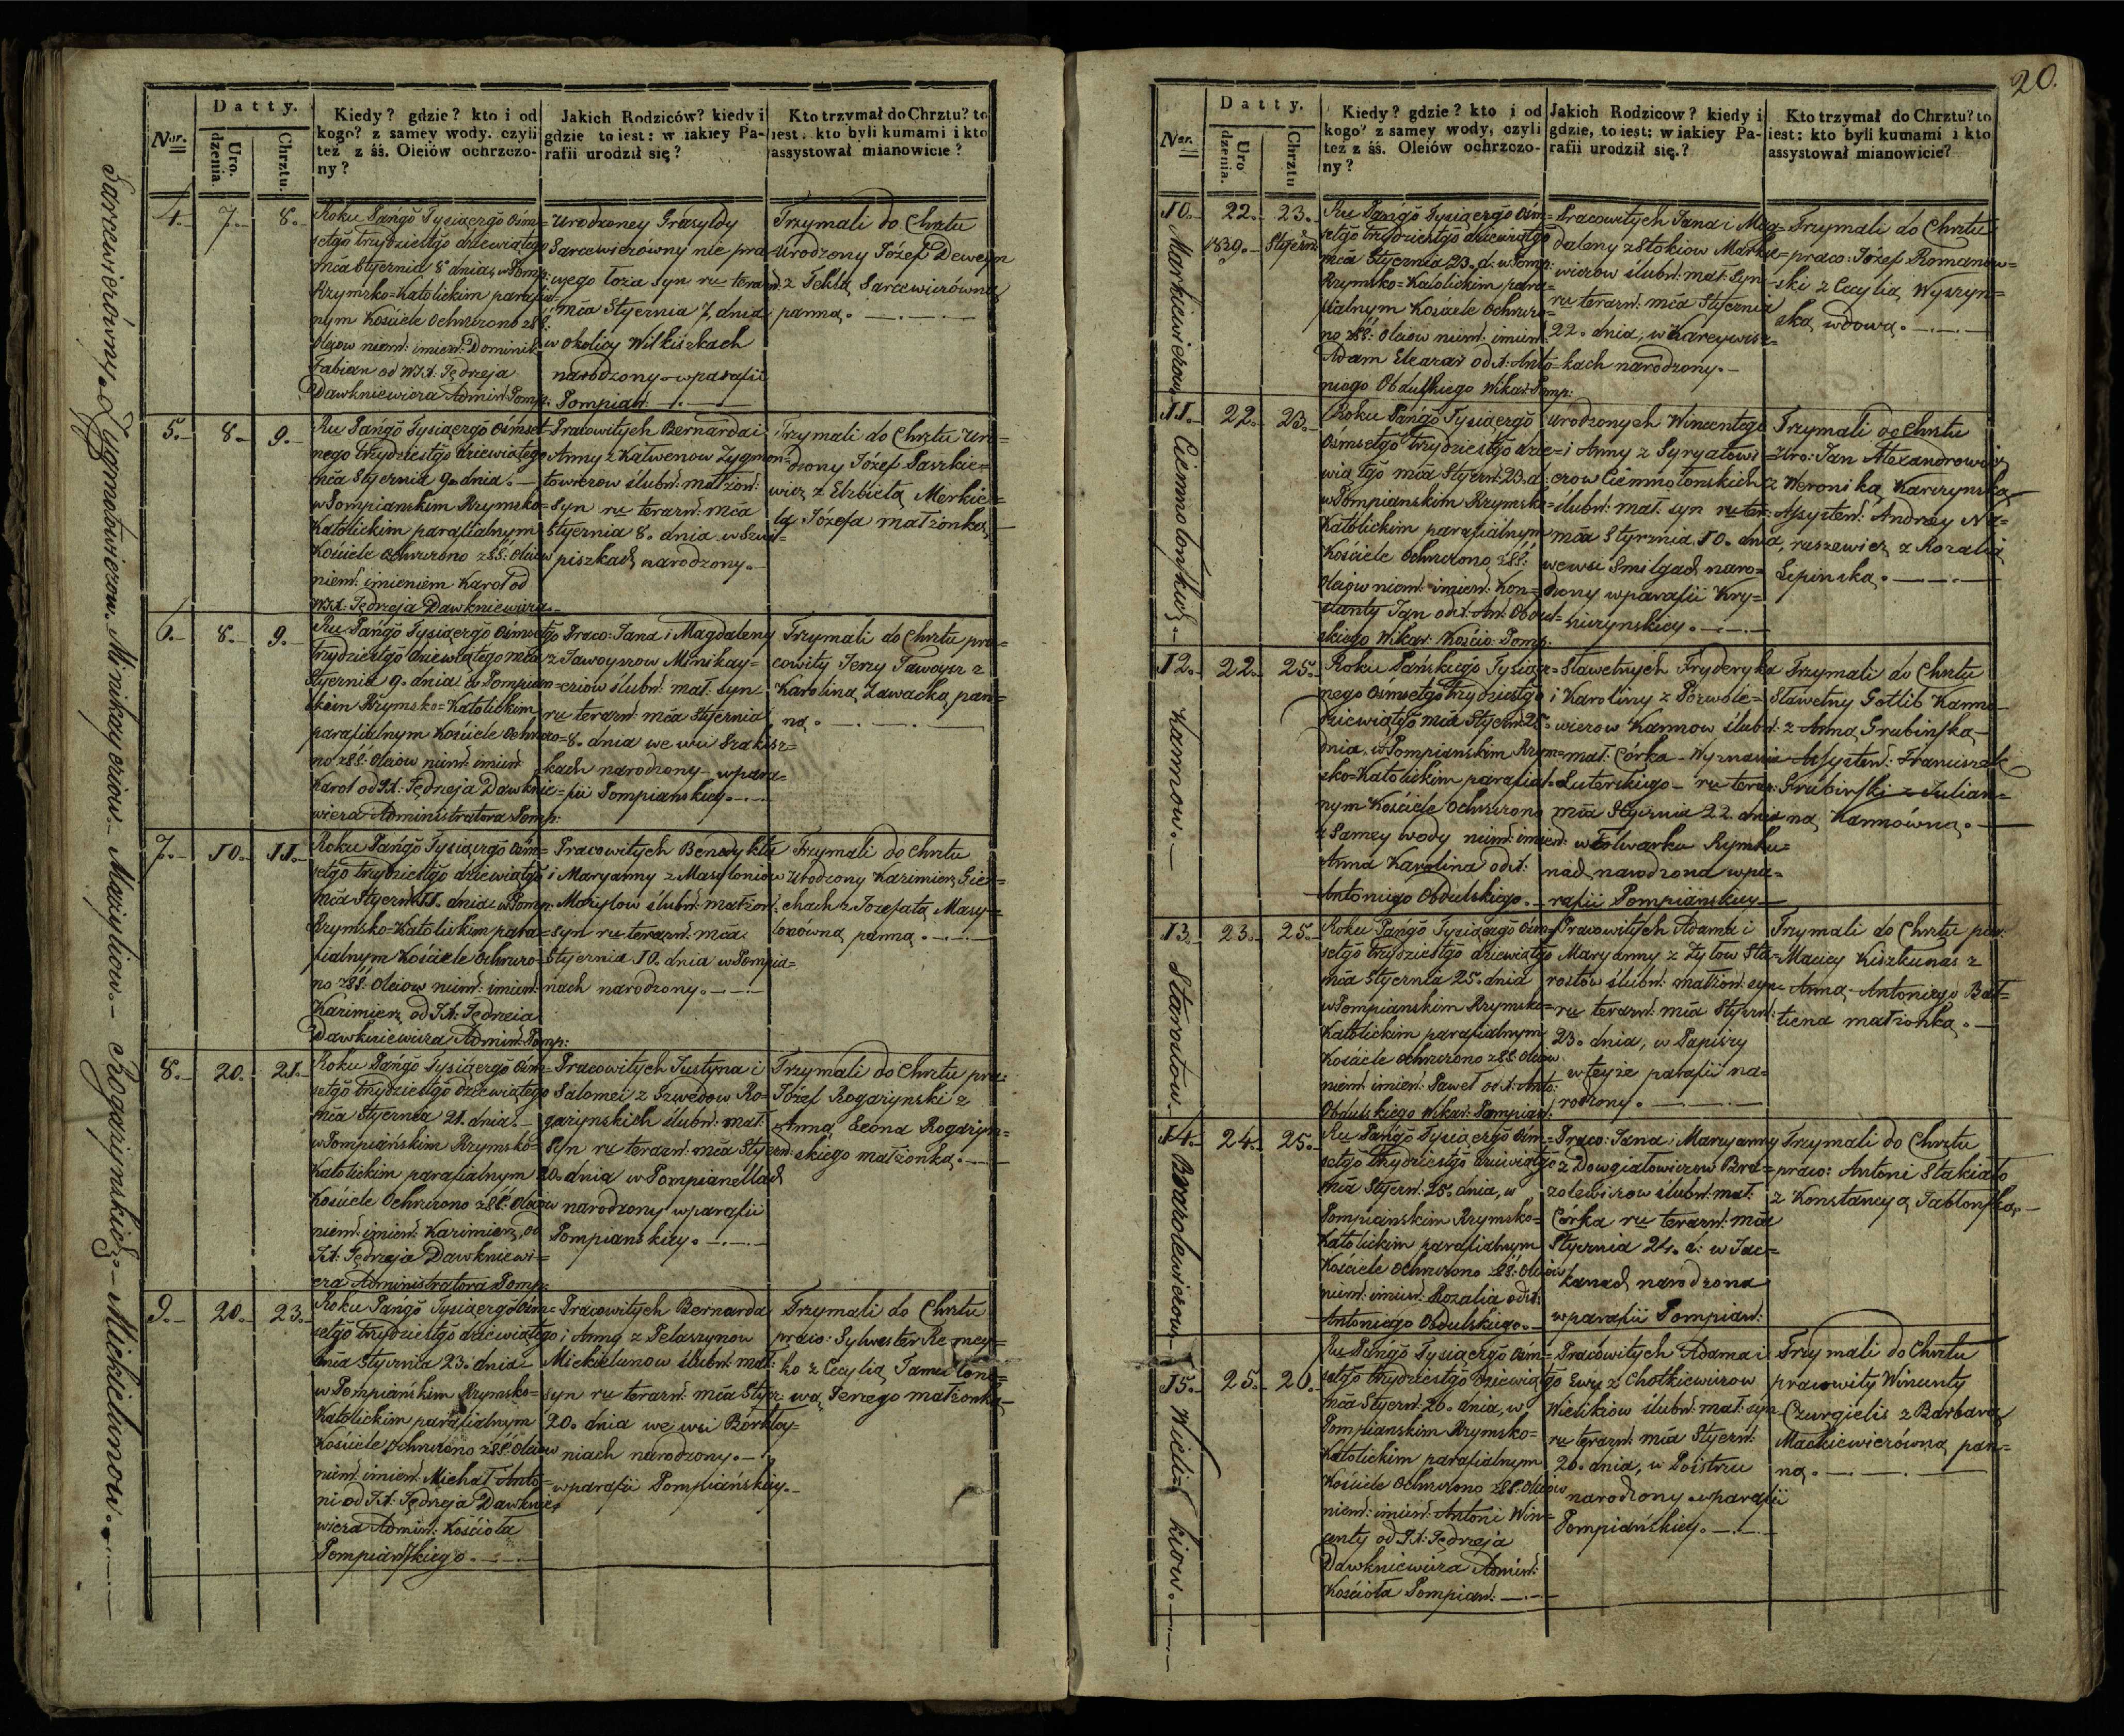 Sarcewiczówny. Zygmontowiczow. Minikayciow. Mazyliow. Rogażynskich. Mickielunow.
Nar.
Datty.
Uro.
dzenia.
Chrztu.
Kiedy? gdzie? kto i od
kogo? z samey wody. czyli
też z śś. Oleiów ochrzczo-
ny?
Jakich Rodziców? kiedy i
gdzie to iest: w iakiey Pa-
rafii urodził się?
Kto trzymał do Chrztu? to
iest. kto byli kumami i kto
assystował mianowicie?
4. 7. 8.
Roku Pańgõ Tysiączgõ Ośm=
setgõ trzydziestgõ dziewiątego
mca Stycznia 8 dnia, w Pomp:
Rzymsko=Katolickim parafial=
nym Kościele Ochrzczono z SS:
Olejow niem: imien: Dominik
Fabian od WJX: Jędrzeja
Dawkniewicza Admin: Pomp:
Urodzoney Grasyldy
Sarcewiczówny nie pra=
wego łoża syn ru teraz:
mca Stycznia 7. dnia
w okolicy Wilkiszkach
narodzony w parafii
Pompian:
Trzymali do Chrztu
Urodzony Józef Deweyn
z Teklą Sarcewiczówną
panną.
5. 8. 9.
Ru Pańgõ Tysiączgõ Ośmset=
nego trzydziestgõ dziewiątego
mca Stycznia 9. dnia.
w Pompianskim Rzymsko=
Katolickim parafialnym
Kościele ochrzczono z SS: Oleiow
niem: imieniem Karol od
WJX: Jędrzeja Dawkniewicza
Pracowitych Bernarda i
Anny z Kalwenow Zygmon=
towiczow ślubn: małżon:
Syn ru terazn: mca
Stycznia 8. dnia w Szwi=
piszkach narodzony.
Trzymali do Chrztu Uro=
dzony Józef Paszkie=
wicz z Elzbietą Merkie=
lą Józefa małżonką
6. 8. 9.
Ru Pańgõ Tysiączgõ Ośmsetgõ
trzydziestgõ dziewiątego mca
Stycznia 9. dnia w Pompian=
skim Rzymsko=Katolickim
parafialnym Kościele Ochrzczo=
no z SS: Oleiow niem: imien:
Karol od JX: Jędrzeja Dawknie=
wicza Administratora Pomp:
Praco: Jana i Magdaleny
z Jawoyszow Minikay=
ciow ślubn: mał: syn
ru terazn: mca Stycznia
8. dnia we wsi Szakisz=
kach narodzony w para=
fii Pompianskiey.
Trzymali do Chrztu pra=
cowity Jerzy Jawoysz z
Karoliną Zawacką pan=
ną.
7. 10. 11.
Roku Pańgõ Tysiączgõ Ośm=
setgõ trzydziestgõ dziewiątgõ
mca Styczn: 11. dnia w Pomp:
Rzymsko=Katolickim para=
fialnym Kościele Ochrzczo=
no z SS: Oleiow niem: imien:
Kazimierz od JX: Jędrzeia
Dawkniewicza Admin: Pomp:
Pracowitych Benedykta
i Maryanny z Masyloniow
Mazylow ślubn: małżon:
syn ru terazn: mca
Stycznia 10. dnia w Pompia=
nach narodzony.
Trzymali do Chrztu
Urodzony Kazimierz Gie=
chach z Jozefatą Masy=
lonówną panną.
8. 20. 21.
Roku Pańgõ Tysiączgõ Ośm=
setgõ trzydziestgõ dziewiątego
mca Stycznia 21. dnia.
w Pompiańskim Rzymsko=
Katolickim parafialnym
Kościele Ochrzczono z SS: Oleiow
niem: imien: Kazimierz, od
JX: Jędrzeja Dawkniewi=
cza Administratora Pomp:
Pracowitych Justyna i
Salomei z Szwedow Ro=
gażynskich ślubn: mał:
Syn ru terazn: mca Styczn:
20. dnia w Pompianellach
narodzony w parafii
Pompianskiey.
Trzymali do Chrztu pra:
Józef Rogażynski z
Anną Leona Rogażyn=
skiego małżonką.
9. 20. 23.
Roku Pańgõ Tysiączgõ Ośm=
setgõ trzydziestgõ dziewiątego
mca Stycznia 23. dnia
w Pompiańskim Rzymsko=
Katolickim parafialnym
Kościele Ochrzczono z SS: Oleiow
niem: imien: Michał Anto=
ni od JX: Jędrzeja Dawknie=
wicza Admin: Kościoła
Pompiańskiego.
Pracowitych Bernarda
i Anny z Pelaszynow
Mickielunow ślubn: mał:
syn ru terazn: mca Stycz:
20. dnia we wsi Borkłoy=
niach narodzony.
w parafii Pompiańskiey.
Trzymali do Chrztu
praco: Sylwester Remey=
ko z Cecylią Jamułoni=
wą Jerzego małżonką
20.
Nar.
Datty.
Uro
dzenia.
Chrztu
Kiedy? gdzie? kto i od
kogo? z samey wody, czyli
też z śś. Oleiów ochrzczo-
ny?
Jakich Rodzicow? kiedy i
gdzie, to iest: w iakiey Pa-
rafii urodził się.?
Kto trzymał do Chrztu? to
iest: kto byli kumami i kto
assystował mianowicie?
10. 22. 23.
1839. Styczn:
Markiewiczow
Ru Pańgõ Tysiączgõ Ośm=
setgõ trzydziestgõ dziewiątgõ
mca Stycznia 23. d: w Pomp:
Rzymsko=Katolickim para=
fialnym Kościele Ochrzczo=
no z SS: Oleiow niem: imien:
Adam Eleazar od X: Anto=
niego Obdulskiego Wikar: Pomp:
Pracowitych Jana i Mag=
daleny z Stokiow Markie=
wiczow ślubn: mał: Syn
ru terazn: mca Stycznia
22. dnia, w Karcywisz=
kach narodzony.
Trzymali do Chrztu
praco: Józef Romanow=
ski z Cecylią Wyszyn=
ską wdową.
11. 22. 23.
Ciemnolońskich
Roku Pańgõ Tysiączgõ
Ośmsetgõ trzydziestgõ dzie=
wiątgõ mca Styczn: 23. d:
w Pompianskim Rzymsko=
Katolickim parafialnym
Kościele Ochrzczono z SS:
Oleiow niem: imien: Kon=
stanty Jan od X: An: Obdul=
skiego Wikar: Kościo: Pomp:
Urodzonych Wincentego
i Anny z Syryatowi=
czow Ciemnolonskich
ślubn: mał: syn ru ter:
mca Stycznia 10. dnia,
we wsi Smilgach naro=
dzony w parafii Kry=
niczynskiey.
Trzymali do Chrztu
Uro: Jan Alexandrowicz
z Weroniką Karczynską
Assysten: Andrzey Na=
ruszewicz z Rozalią
Lipinską.
12. 22. 25.
Kannow.
Roku Pańskiego Tysiącz=
nego Ośmsetgõ trzydziestgõ
dziewiątgõ mca Styczn: 25.
dnia, w Pompiańskim Rzym=
sko=Katolickim parafial=
nym Kościele Ochrzczono
z Samey wody niem: imien:
Anna Karolina od X:
Antoniego Obdulskiego.
Sławetnych Fryderyka
i Karoliny z Pozwole=
wiczow Kannow ślubn:
mał: Córka Wyznania
Luterskiego ru teraz:
mca Stycznia 22. dnia
w Folwarku Rymku=
nach narodzona w pa=
rafii Pompiańskiey
Trzymali do Chrztu
Sławetny Gotlib Kanno
z Anną Grubinską
Assysten: Franciszek
Grubinski z Julian=
ną Kannówną.
13. 23. 25.
Starostow
Roku Pańgõ Tysiączgõ Ośm=
setgõ trzydziestgõ dziewiątgõ
mca Stycznia 25. dnia
w Pompianskim Rzymsko=
Katolickim parafialnym
Kościele Ochrzczono z SS: Oleiow
niem: imien: Paweł od X: Anto:
Obdulskiego Wikar: Pompian:
Pracowitych Adama i
Maryanny z Zyłow Sta=
rostow ślubn: małżon: syn
ru terazn: mca Styczn:
23. dnia, w Papiszy
w teyże parafii na=
rodzony.
Trzymali do Chrztu pra:
Maciey Kiszkunas z
Anną Antoniego Bał=
tiena małżonką.
14. 24. 25.
Brazolewiczow
Ru Pańgõ Tysiączgõ Ośm=
setgõ trzydziestgõ dziewiątgõ
mca Styczn: 25. dnia, w
Pompianskim Rzymsko=
Katolickim parafialnym
Kościele Ochrzczono z SS: Oleiow
niem: imien: Rozalia od X:
Antoniego Obdulskiego.
Praco: Jana i Maryanny
z Dowgiałowiczow Bra=
zolewiczow ślubn: mał:
Córka ru terazn: mca
Stycznia 24. d: w Jac=
kanach narodzona
w parafii Pompian:
Trzymali do Chrztu
praco: Antoni Stakiało
z Konstancyą Jabłonską
15. 25. 26.
Wieli= kiow.
Ru Pańgõ Tysiączgõ Ośm=
setgõ trzydziestgõ dziewiąt=
mca Styczn: 26. dnia, w
Pompianskim Rzymsko=
Katolickim parafialnym
Kościele Ochrzczono z SS: Oleiow
niem: imien: Antoni Win=
centy od JX: Jędrzeja
Dawkniewicza Admin:
Kościoła Pompian:
Pracowitych Adama i
gõ Ewy z Chotkiewiczow
Wielikiow ślubn: mał: syn
ru terazn: mca Styczn:
20. dnia, w Poistru
narodzony w parafii
Pompiańskiey.
Trzymali do Chrztu
pracowity Wincenty
Czurgielis z Barbarą
Mackiewiczówną pan=
ną.